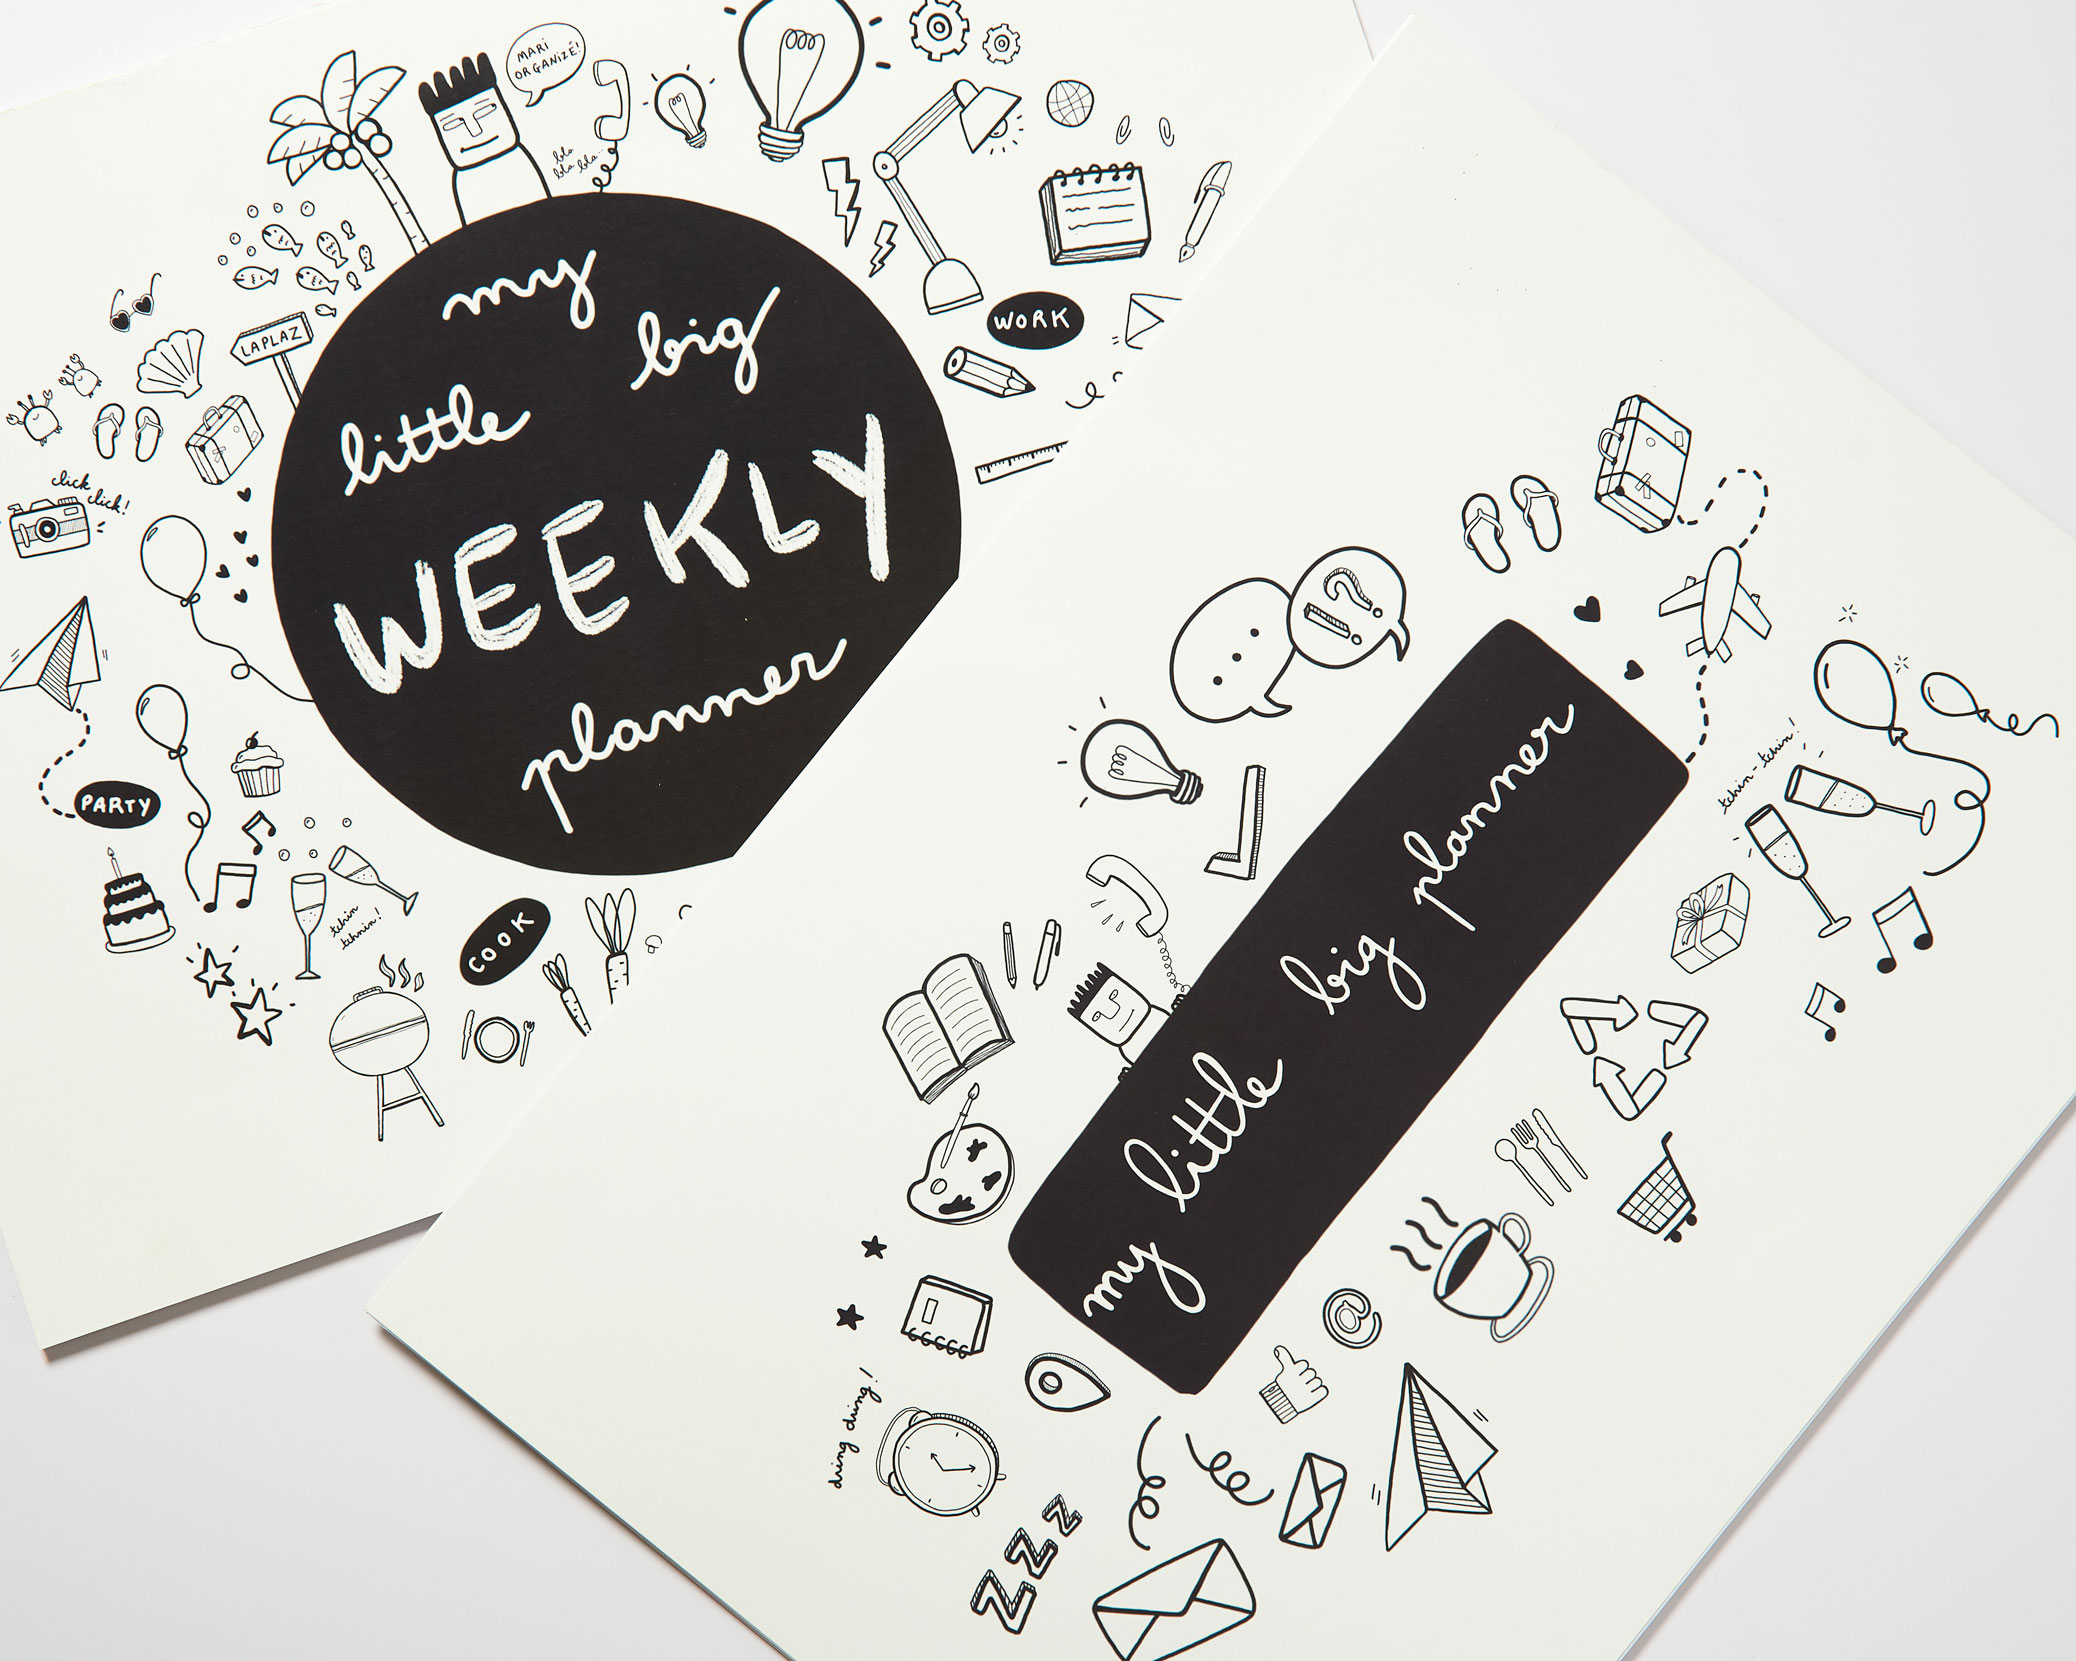 MARI
ORGANIZÉ!
bla
bla bla...
my
little big
WEEKLY
planner
LAPLAZ
WORK
click
click!
PARTY
tchin
tchnin!
COOK
...
!?
my little big planner
tchin-tchin!
@
dring dring!
ZZZ